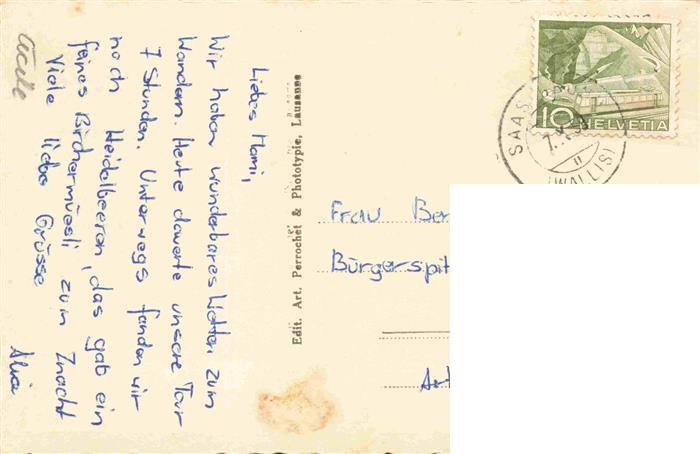 Liebes Mami,
Wir haben wunderbares Wetter zum
Wandern. Heute dauerte unsere Tour
7 Stunden. Unterwegs fanden wir
noch Heidelbeeren, das gab ein
feines Birchermüesli zum Znacht
Viele liebe Grüsse
Edit. Art. Perrochet & Phototypie, Lausanne
10 HELVETIA
SAAS
(WALLIS)
Frau Ber
Bürgerspit